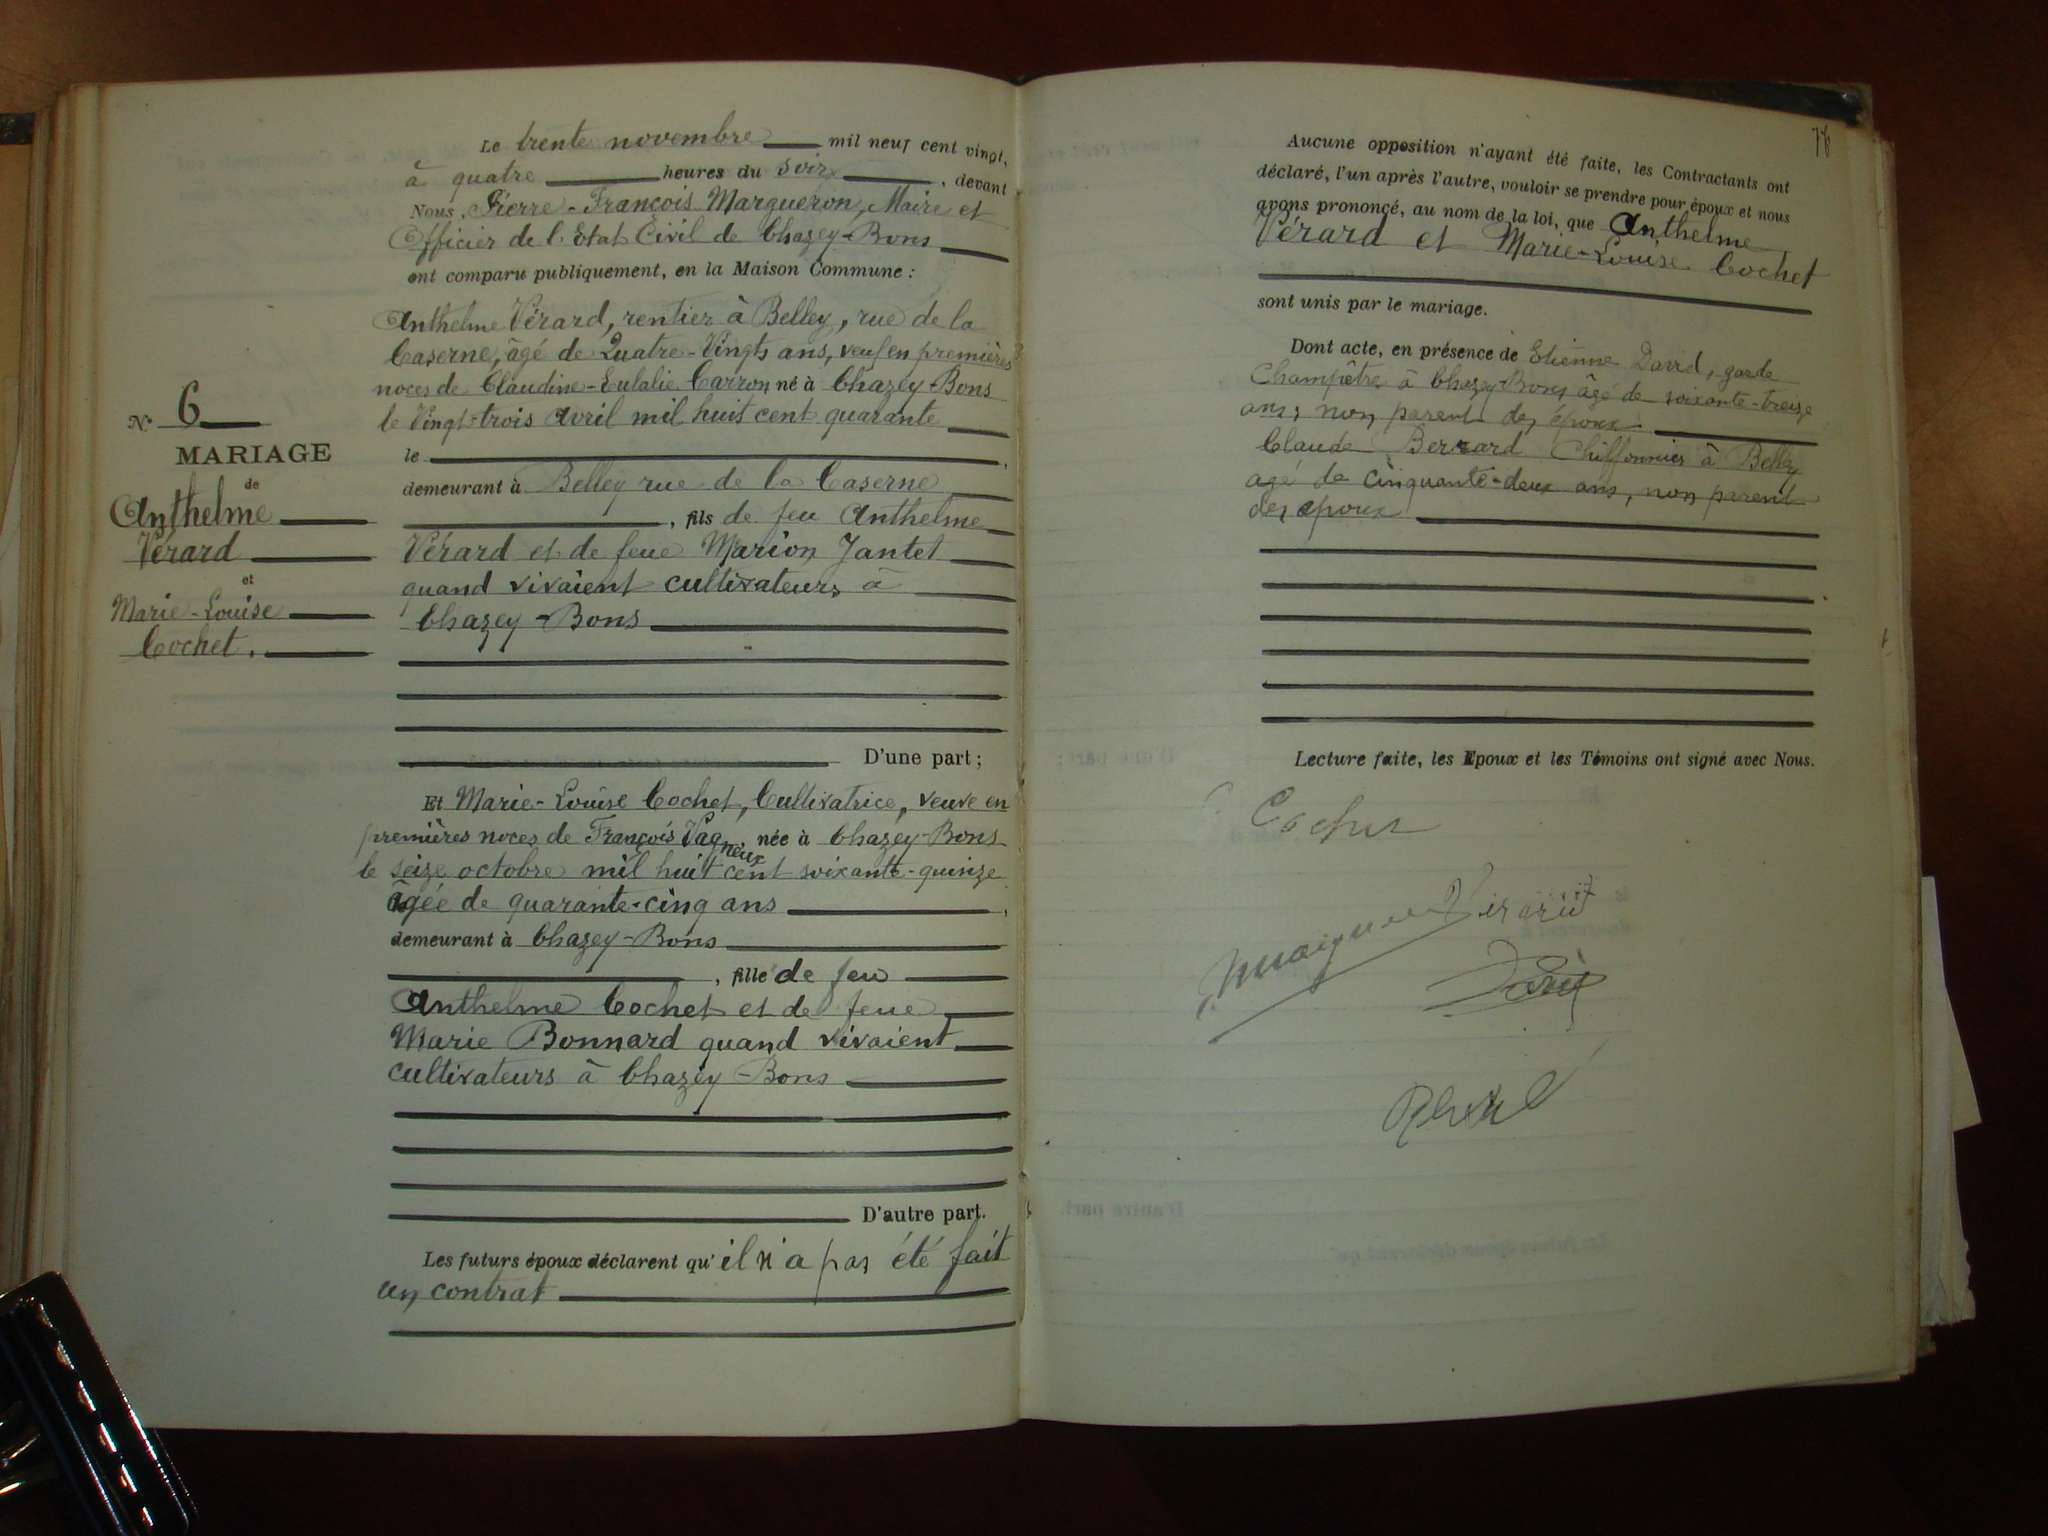 Le trente novembre mil neuf cent vingt,
à quatre heures du soir, devant
Nous, Pierre-François Margueron, Maire et
Officier de l'Etat Civil de Chazey-Bons
ont comparu publiquement, en la Maison Commune :
Anthelme Vérard, rentier à Belley, rue de la
Caserne, âgé de Quatre-Vingts ans, veuf en premières
noces de Claudine-Eulalie Carron né à Chazey-Bons
le Vingt-trois Avril mil huit cent quarante
le
demeurant à Belley rue de la Caserne
, fils de feu Anthelme
Vérard et de feue Marion Jantet
quand vivaient cultivateurs à
Chazey-Bons
D'une part ;
N° 6
MARIAGE
de
Anthelme
Vérard
et
Marie-Louise
Cochet.
Et Marie-Louise Cochet, Cultivatrice, veuve en
premières noces de François Vagneux née à Chazey-Bons
le seize octobre mil huit cent soixante-quinze
âgée de quarante-cinq ans
demeurant à Chazey-Bons
, fille de feu
Anthelme Cochet et de feue
Marie Bonnard quand vivaient
cultivateurs à Chazey-Bons
D'autre part.
Les futurs époux déclarent qu'il n'a pas été fait
un contrat
76
Aucune opposition n'ayant été faite, les Contractants ont
déclaré, l'un après l'autre, vouloir se prendre pour époux et nous
avons prononcé, au nom de la loi, que Anthelme
Vérard et Marie-Louise Cochet
sont unis par le mariage.
Dont acte, en présence de Etienne David, garde
Champêtre à Chazey-Bons âgé de soixante-treize
ans, non parent des époux
Claude Berrard Chiffonnier à Belley
agé de cinquante-deux ans, non parent
des epoux
Lecture faite, les Epoux et les Témoins ont signé avec Nous.
Cochet
Vérard
David